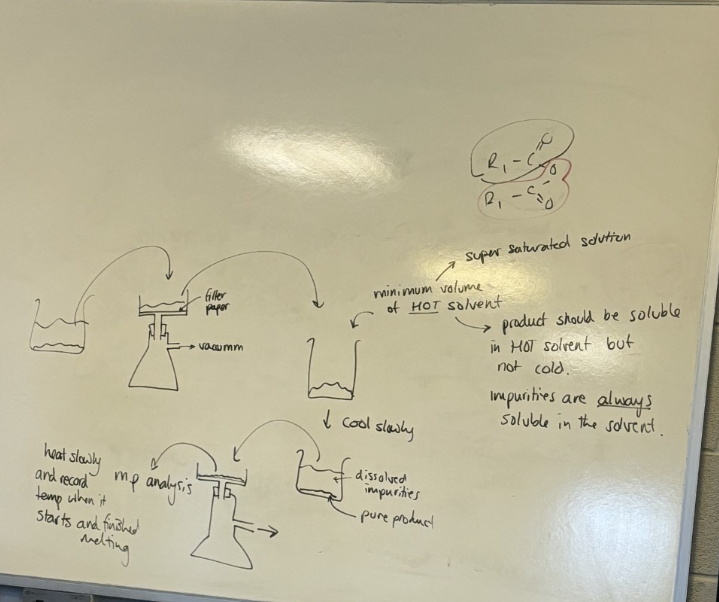 O
R₁ - C
O
R₁ - C
O
super saturated solution
minimum volume
of HOT solvent
product should be soluble
in HOT solvent but
not cold.
impurities are always
soluble in the solvent.
filter
paper
vacuumm
cool slowly
dissolved
impurities
pure product
mp analysis
heat slowly
and record
temp when it
starts and finished
melting